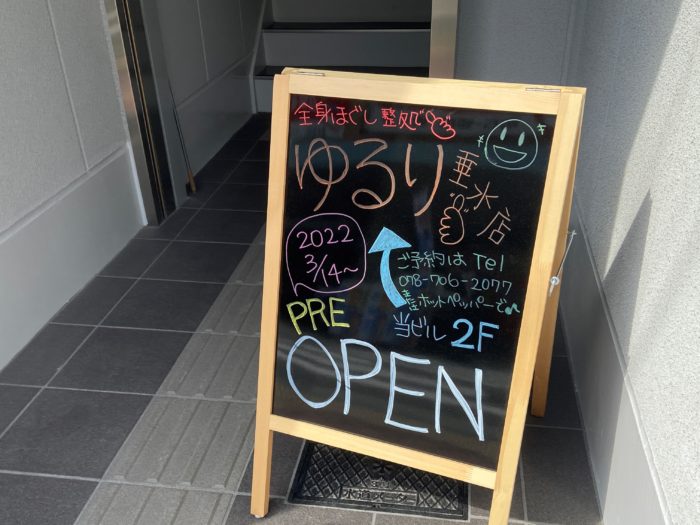 全身ほぐし整処
ゆるり
垂水店
2022
3/14~
ご予約は Tel
078-706-2077
ホットペッパーで♪
当ビル 2F
PRE
OPEN
水道メーター